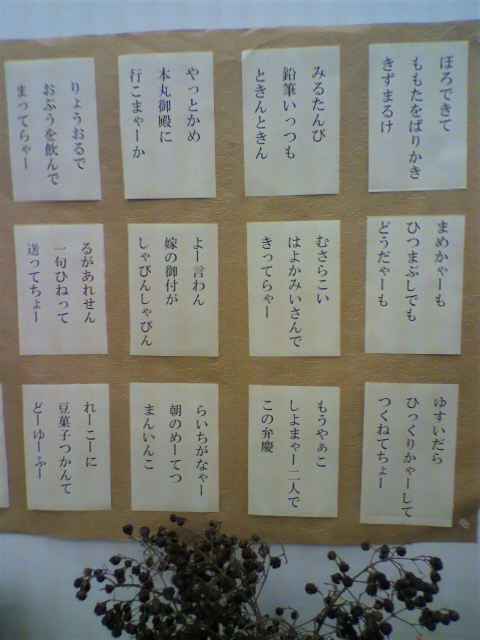 ほろできて
ももたをばりかき
きずまるけ
みるたんび
鉛筆いっつも
ときんときん
やっとかめ
本丸御殿に
行こまゃーか
りょうおるで
おぶうを飲んで
まってらゃー
まめかゃーも
ひつまぶしでも
どうだゃーも
むさらこい
はよかみいさんで
きってらゃー
よー言わん
嫁の御付が
しゃびんしゃびん
るがあれせん
一句ひねって
送ってちょー
ゆすいだら
ひっくりかゃーして
つくねてちょー
もうやぁこ
しよまゃー二人で
この弁慶
らいちがなゃー
朝のめーてつ
まんいんこ
れーこーに
豆菓子つかんて
どーゆーふー